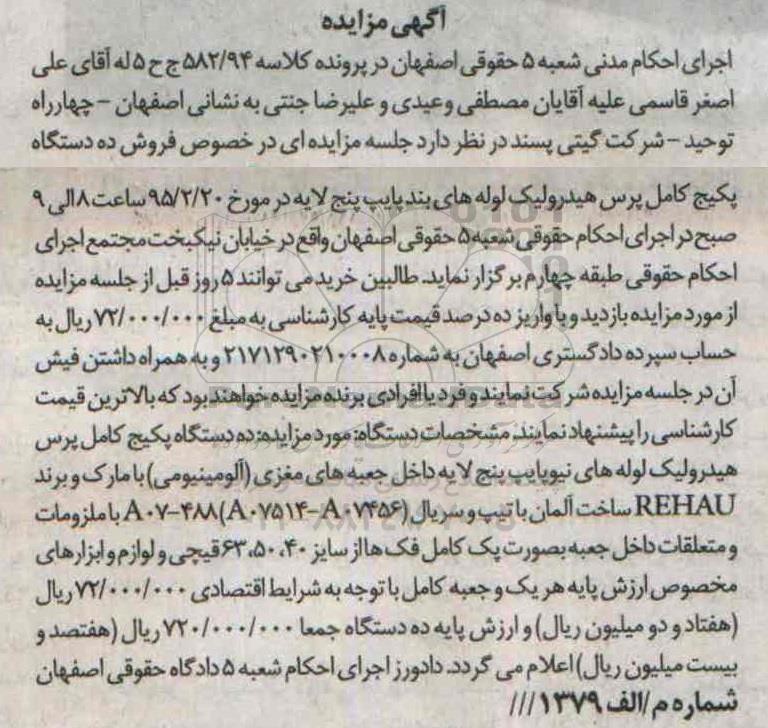 آگهی مزایده
اجرای احکام مدنی شعبه ۵ حقوقی اصفهان در پرونده کلاسه ۵۸۲/۹۴ ج ح ۵ له آقای علی
اصغر قاسمی علیه آقایان مصطفی وعیدی و علیرضا جنتی به نشانی اصفهان – چهارراه
توحید – شرکت گیتی پسند در نظر دارد جلسه مزایده ای در خصوص فروش ده دستگاه
پکیج کامل پرس هیدرولیک لوله های بندپایپ پنج لایه در مورخ ۹۵/۲/۲۰ ساعت ۸ الی ۹
صبح در اجرای احکام حقوقی شعبه ۵ حقوقی اصفهان واقع در خیابان نیکبخت مجتمع اجرای
احکام حقوقی طبقه چهارم برگزار نماید. طالبین خرید می توانند ۵ روز قبل از جلسه مزایده
از مورد مزایده بازدید و با واریز ده درصد قیمت پایه کارشناسی به مبلغ ۷۲/۰۰۰/۰۰۰ ریال به
حساب سپرده دادگستری اصفهان به شماره ۲۱۷۱۲۹۰۲۱۰۰۰۸ و به همراه داشتن فیش
آن در جلسه مزایده شرکت نمایند و فرد یا افرادی برنده مزایده خواهند بود که بالاترین قیمت
کارشناسی را پیشنهاد نمایند. مشخصات دستگاه: مورد مزایده: ده دستگاه پکیج کامل پرس
هیدرولیک لوله های نیوپایپ پنج لایه داخل جعبه های مغزی (آلومینیومی) با مارک و برند
REHAU ساخت آلمان با تیپ و سریال (A۰۷۵۱۴-A۰۷۴۵۶) A۰۷-۴۸۸ با ملزومات
و متعلقات داخل جعبه بصورت پک کامل فک ها از سایز ۴۰، ۵۰، ۶۳ قیچی و لوازم و ابزارهای
مخصوص ارزش پایه هر یک و جعبه کامل با توجه به شرایط اقتصادی ۷۲/۰۰۰/۰۰۰ ریال
(هفتاد و دو میلیون ریال) و ارزش پایه ده دستگاه جمعا ۷۲۰/۰۰۰/۰۰۰ ریال (هفتصد و
بیست میلیون ریال) اعلام می گردد. دادورز اجرای احکام شعبه ۵ دادگاه حقوقی اصفهان
شماره م/الف ۱۳۷۹ ///